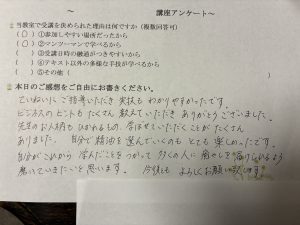 ～ 講座アンケート～
当教室で受講を決められた理由は何ですか（複数回答可）
（○）①参加しやすい場所だったから
（○）②マンツーマンで学べるから
（ ）③受講日時の融通がつきやすいから
（ ）④テキスト以外の多様な手技が学べるから
（ ）⑤その他（ ）
本日のご感想をご自由にお書きください。
ていねいにご指導いただき 実技も わかりやすかったです。
ビジネスのヒントも たくさん 教えていただき ありがとうございました。
先生のお人柄も ひかれるもの、学ばせていただくことが たくさん
ありました。 自分で精油を 選んでいくのも とても 楽しかったです。
自分がこれから 学んだことを つかって 多くの人に 癒やしを 届けられるよう
磨いていきたいと思います。 今後とも よろしくお願い致します。